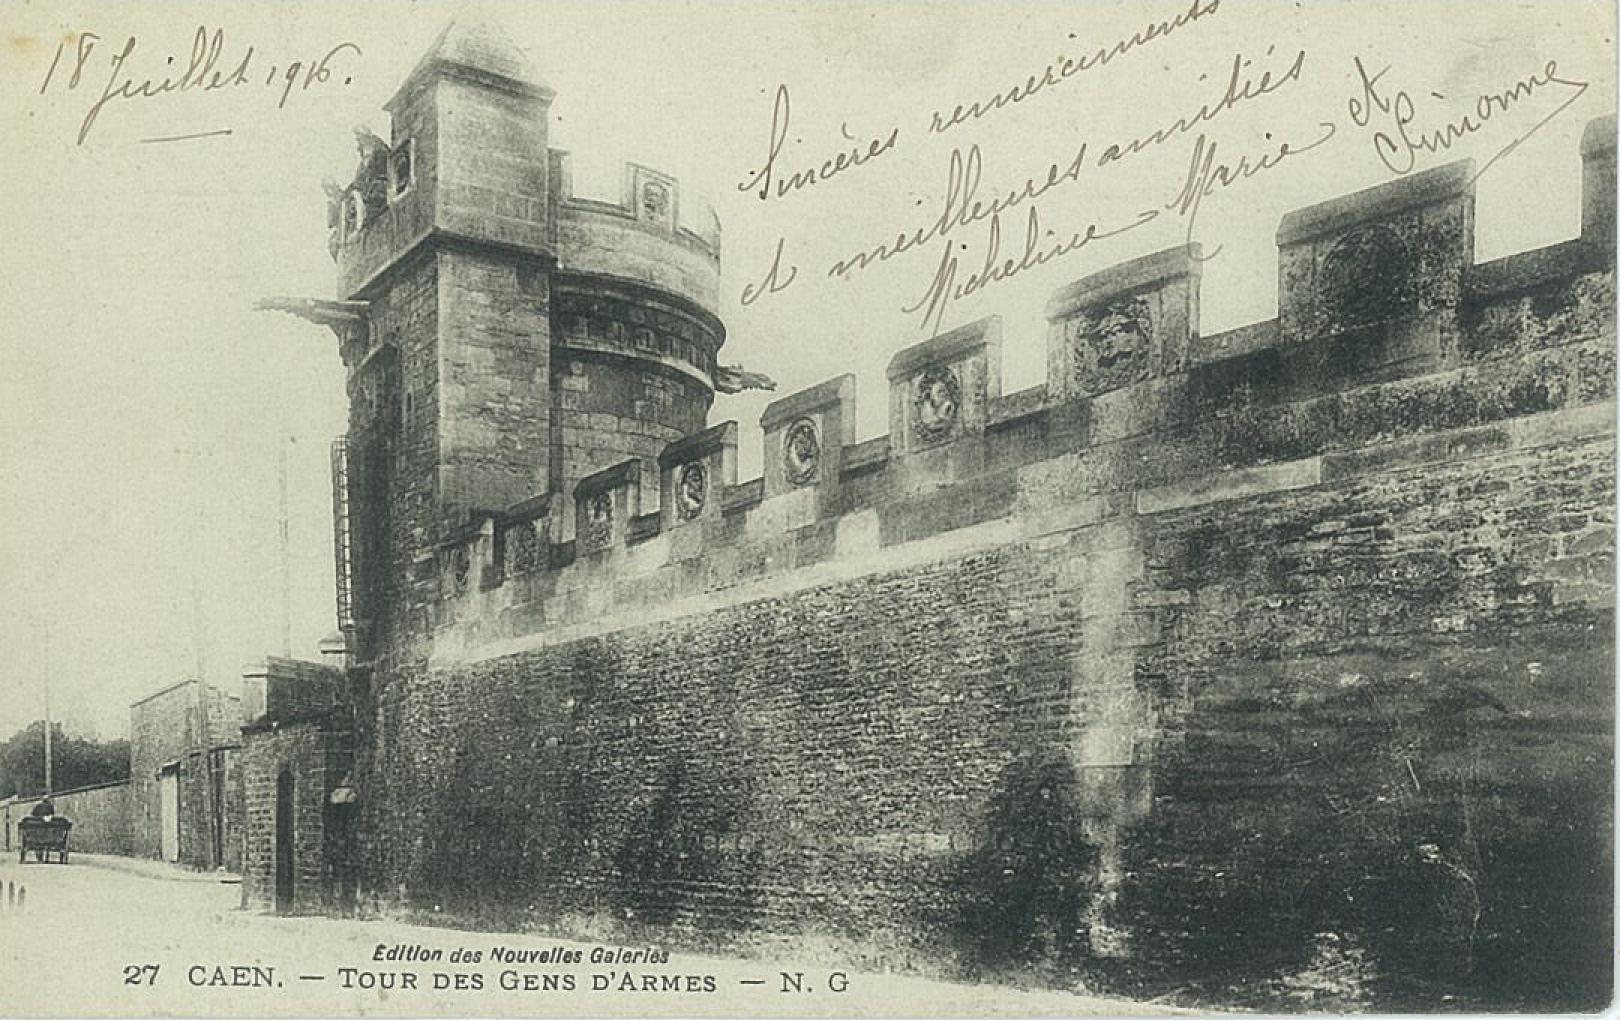 18 Juillet 1916.
Sincères remerciments
et meilleures amitiés
Micheline Marie et
Simonne
Édition des Nouvelles Galeries
27 CAEN. — TOUR DES GENS D'ARMES — N. G